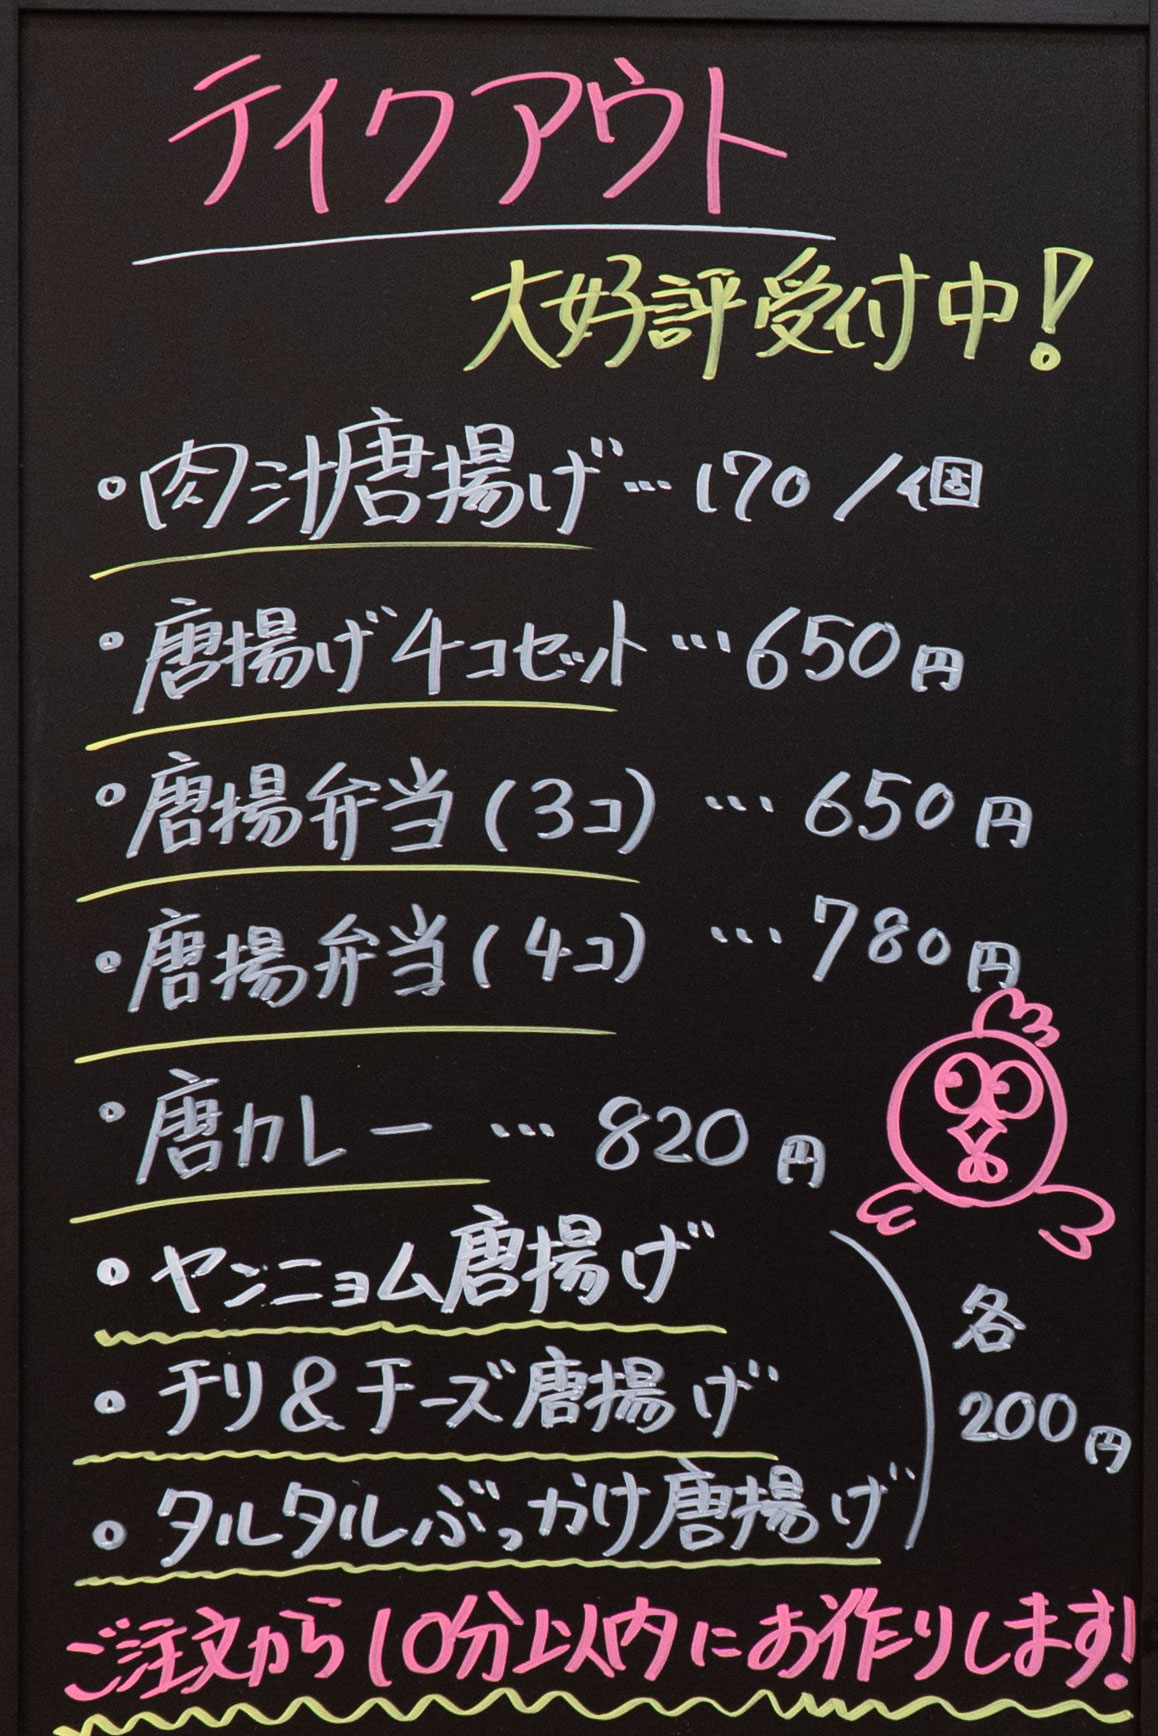 テイクアウト
大好評受付中！
・肉汁唐揚げ…170／個
・唐揚げ4コセット…650円
・唐揚弁当(3コ)…650円
・唐揚弁当(4コ)…780円
・唐カレー…820円
・ヤンニョム唐揚げ
・チリ&チーズ唐揚げ
・タルタルぶっかけ唐揚げ
各
200円
ご注文から10分以内にお作りします!